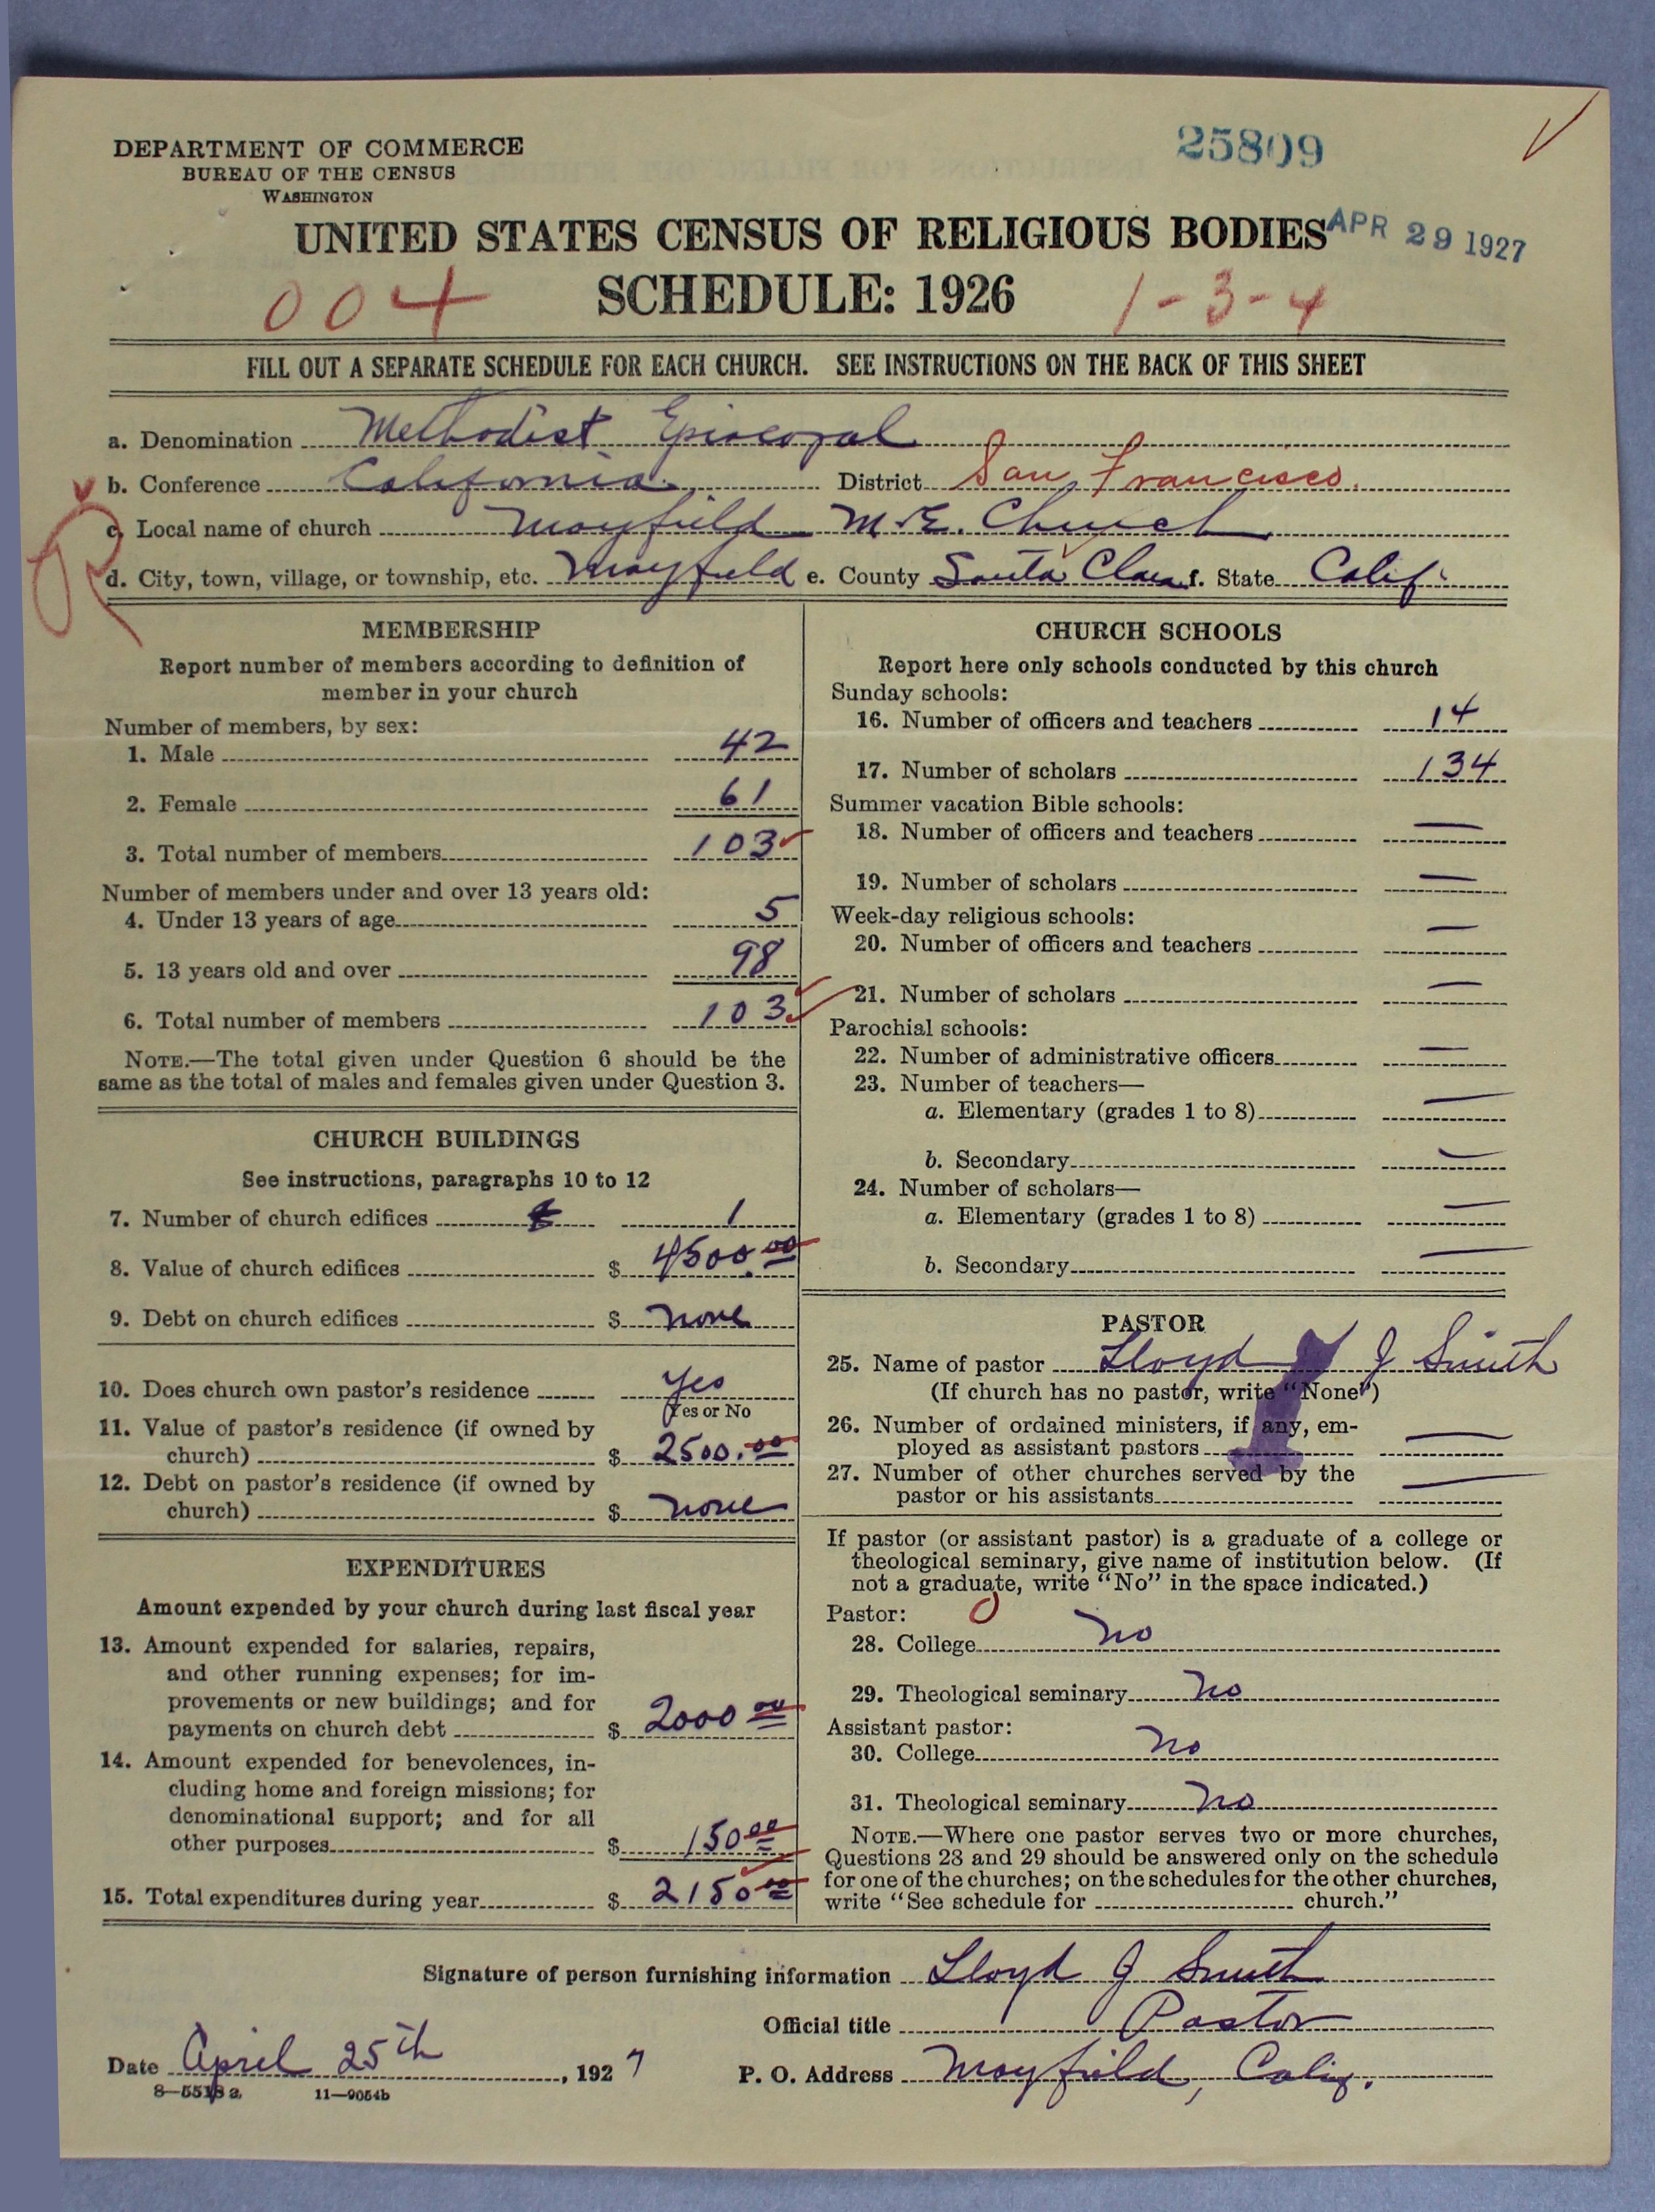 DEPARTMENT OF COMMERCE
BUREAU OF THE CENSUS
WASHINGTON
25809
UNITED STATES CENSUS OF RELIGIOUS BODIES
APR 29 1927
SCHEDULE: 1926
004
1-3-4
FILL OUT A SEPARATE SCHEDULE FOR EACH CHURCH. SEE INSTRUCTIONS ON THE BACK OF THIS SHEET
a. Denomination Methodist Episcopal
b. Conference California. District San Francisco.
c. Local name of church Mayfield M.E. Church
d. City, town, village, or township, etc. Mayfield e. County Santa Clara f. State Calif.
MEMBERSHIP
Report number of members according to definition of
member in your church
Number of members, by sex:
1. Male 42
2. Female 61
3. Total number of members 103
Number of members under and over 13 years old:
4. Under 13 years of age 5
5. 13 years old and over 98
6. Total number of members 103
NOTE.—The total given under Question 6 should be the
same as the total of males and females given under Question 3.
CHURCH BUILDINGS
See instructions, paragraphs 10 to 12
7. Number of church edifices 1
8. Value of church edifices $ 4500.00
9. Debt on church edifices $ none
10. Does church own pastor's residence Yes
Yes or No
11. Value of pastor's residence (if owned by
church) $ 2500.00
12. Debt on pastor's residence (if owned by
church) $ none
EXPENDITURES
Amount expended by your church during last fiscal year
13. Amount expended for salaries, repairs,
and other running expenses; for im-
provements or new buildings; and for
payments on church debt $ 2000 00
14. Amount expended for benevolences, in-
cluding home and foreign missions; for
denominational support; and for all
other purposes $ 150 00
15. Total expenditures during year $ 2150 00
CHURCH SCHOOLS
Report here only schools conducted by this church
Sunday schools:
16. Number of officers and teachers 14
17. Number of scholars 134
Summer vacation Bible schools:
18. Number of officers and teachers —
19. Number of scholars —
Week-day religious schools:
20. Number of officers and teachers —
21. Number of scholars —
Parochial schools:
22. Number of administrative officers —
23. Number of teachers—
a. Elementary (grades 1 to 8) —
b. Secondary —
24. Number of scholars—
a. Elementary (grades 1 to 8) —
b. Secondary —
PASTOR
25. Name of pastor Lloyd J Smith
(If church has no pastor, write "None")
26. Number of ordained ministers, if any, em-
ployed as assistant pastors —
27. Number of other churches served by the
pastor or his assistants —
If pastor (or assistant pastor) is a graduate of a college or
theological seminary, give name of institution below. (If
not a graduate, write "No" in the space indicated.)
Pastor: 0
28. College no
29. Theological seminary no
Assistant pastor:
30. College no
31. Theological seminary no
NOTE.—Where one pastor serves two or more churches,
Questions 28 and 29 should be answered only on the schedule
for one of the churches; on the schedules for the other churches,
write "See schedule for church."
Signature of person furnishing information Lloyd J Smith
Official title Pastor
Date April 25th, 1927 P. O. Address Mayfield, Calif.
8—5518 a 11—9054b